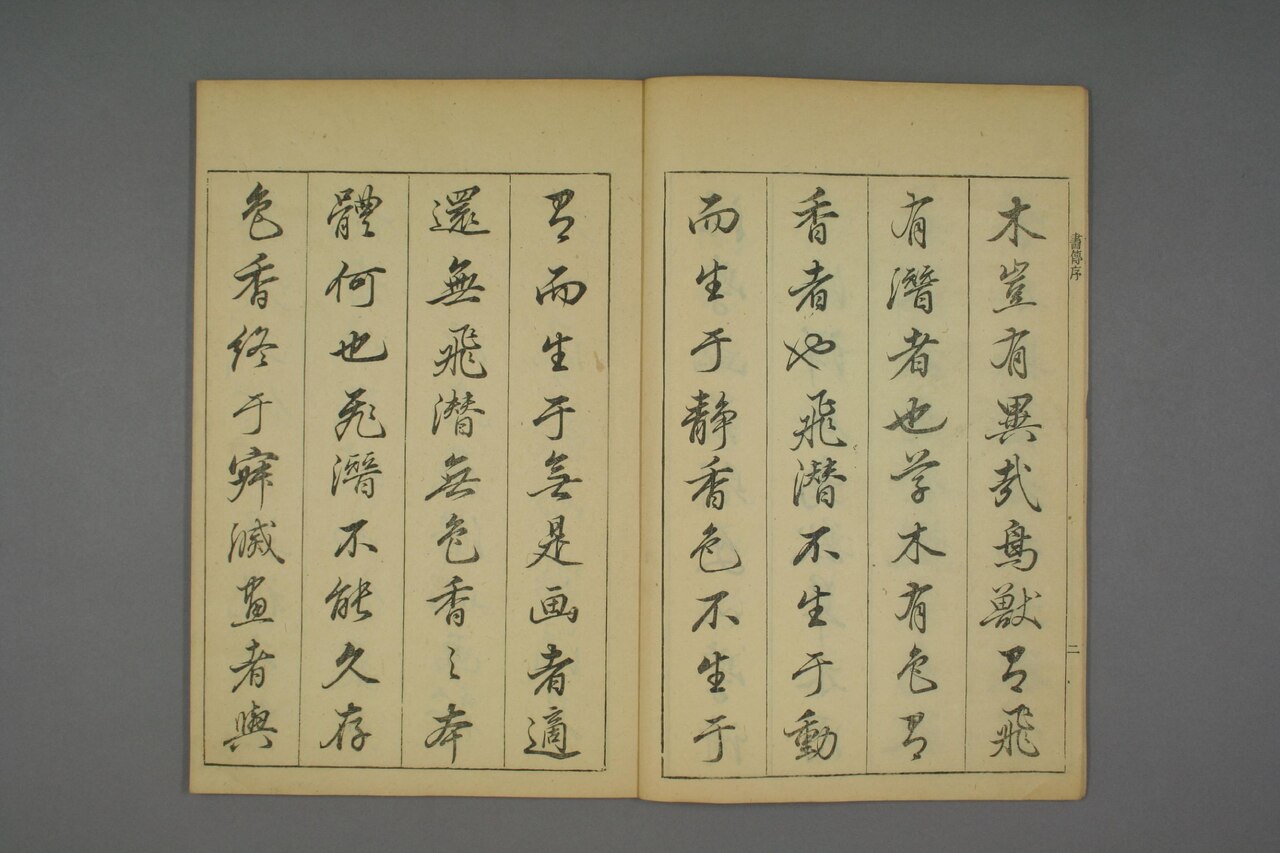 書傳序
二
木豈有異哉鳥獸有飛
有潛者也草木有色有
香者也飛潛不生于動
而生于靜香色不生于
有而生于無是画者適
還無飛潛無色香之本
體何也飛潛不能久存
色香終于寂滅畫者與